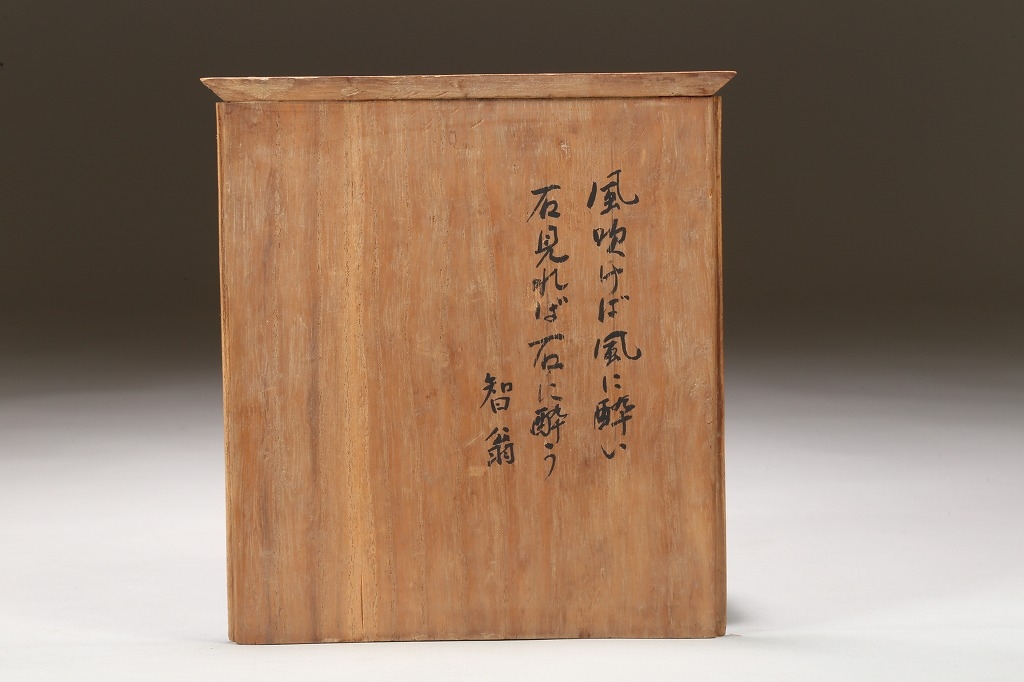 風吹けば風に酔い
石見れば石に酔う
智翁